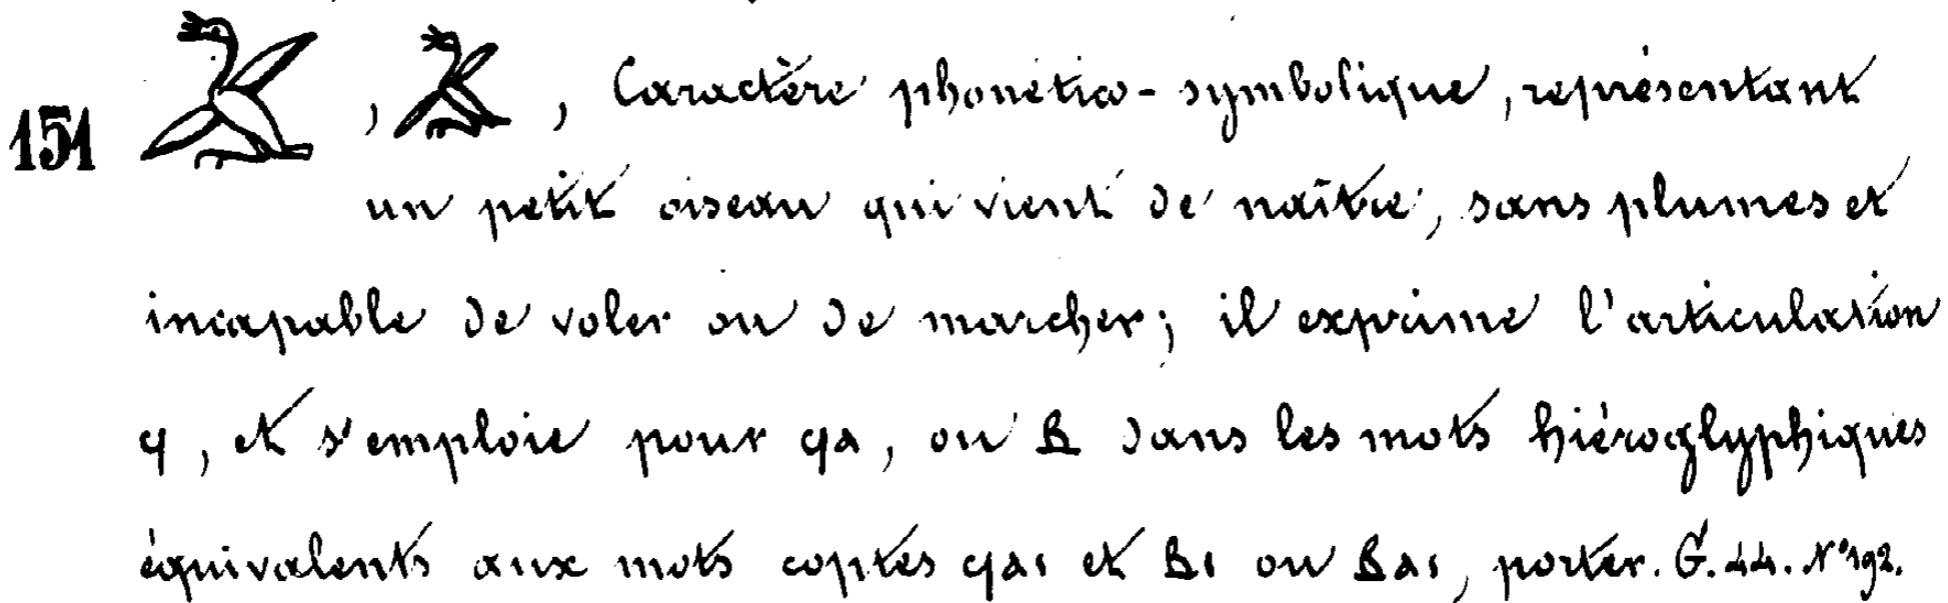 151 , , Caractère phonético-symbolique, représentant
un petit oiseau qui vient de naître, sans plumes et
incapable de voler ou de marcher; il exprime l'articulation
ϥ, et s'emploie pour ϥⲁ, ou Ⲃ dans les mots hiéroglyphiques
équivalents aux mots coptes ϥⲁⲓ et Ⲃⲓ ou Ⲃⲁⲓ, porter. G. 44. N° 192.